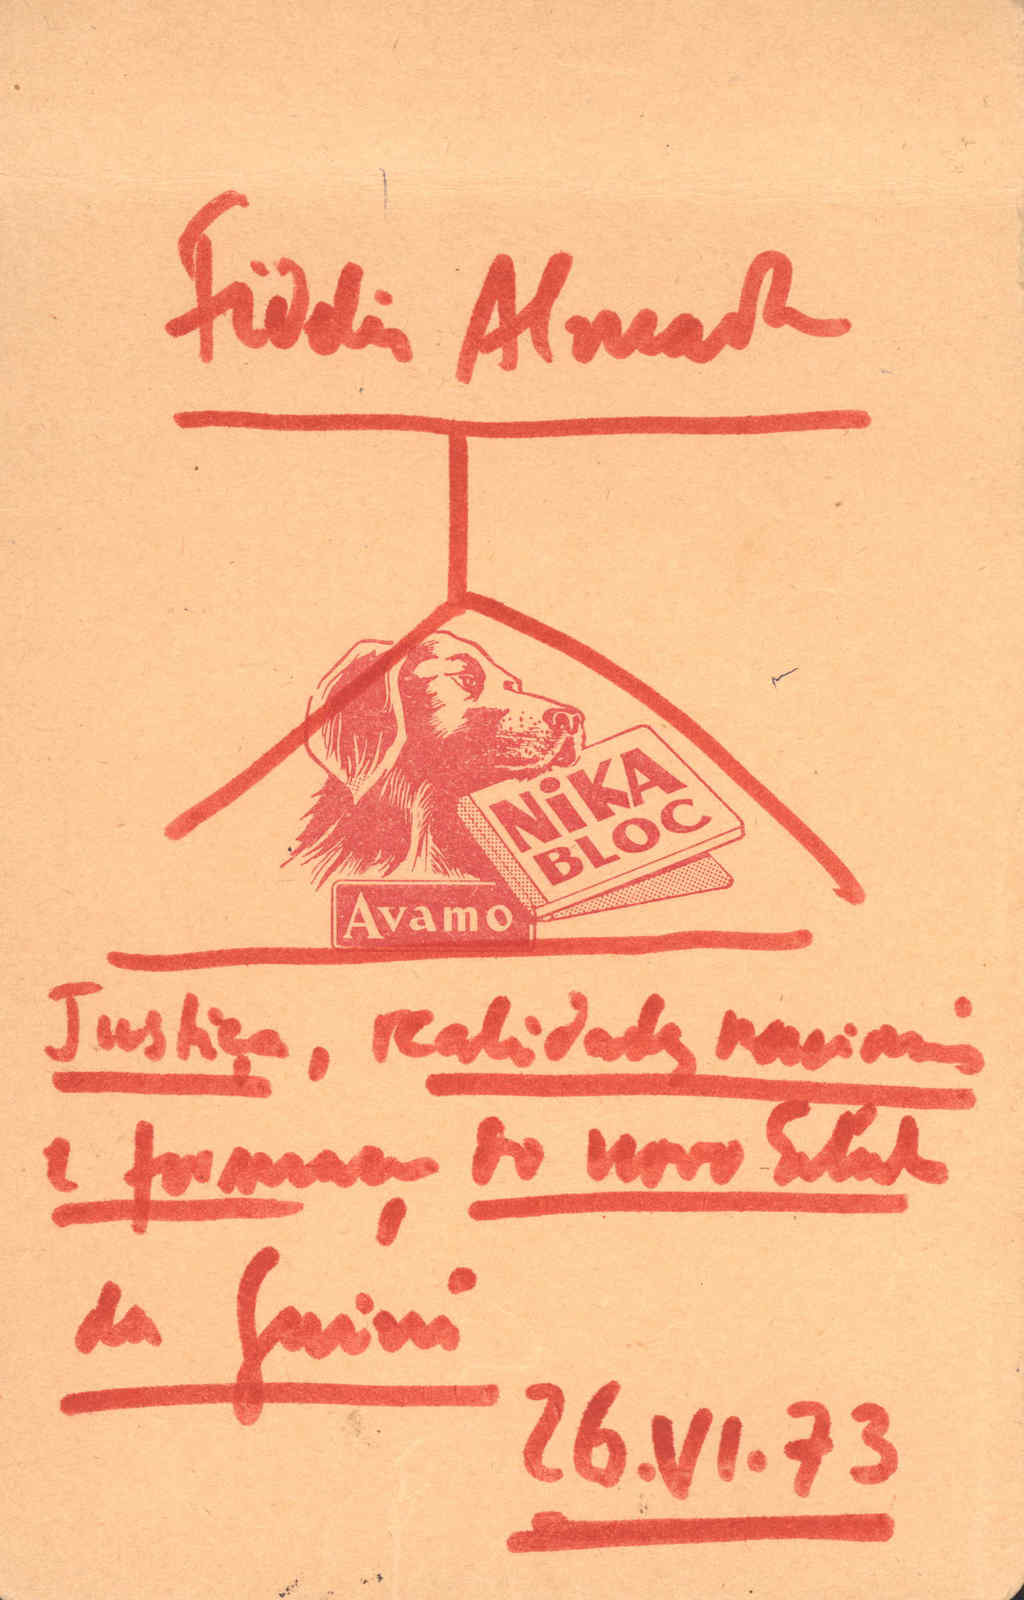 Fidélis Almada
NiKA
BLOC
Avamo
Justiça, realidades nacionais
e formação do novo Estado
da Guiné
26.VI.73